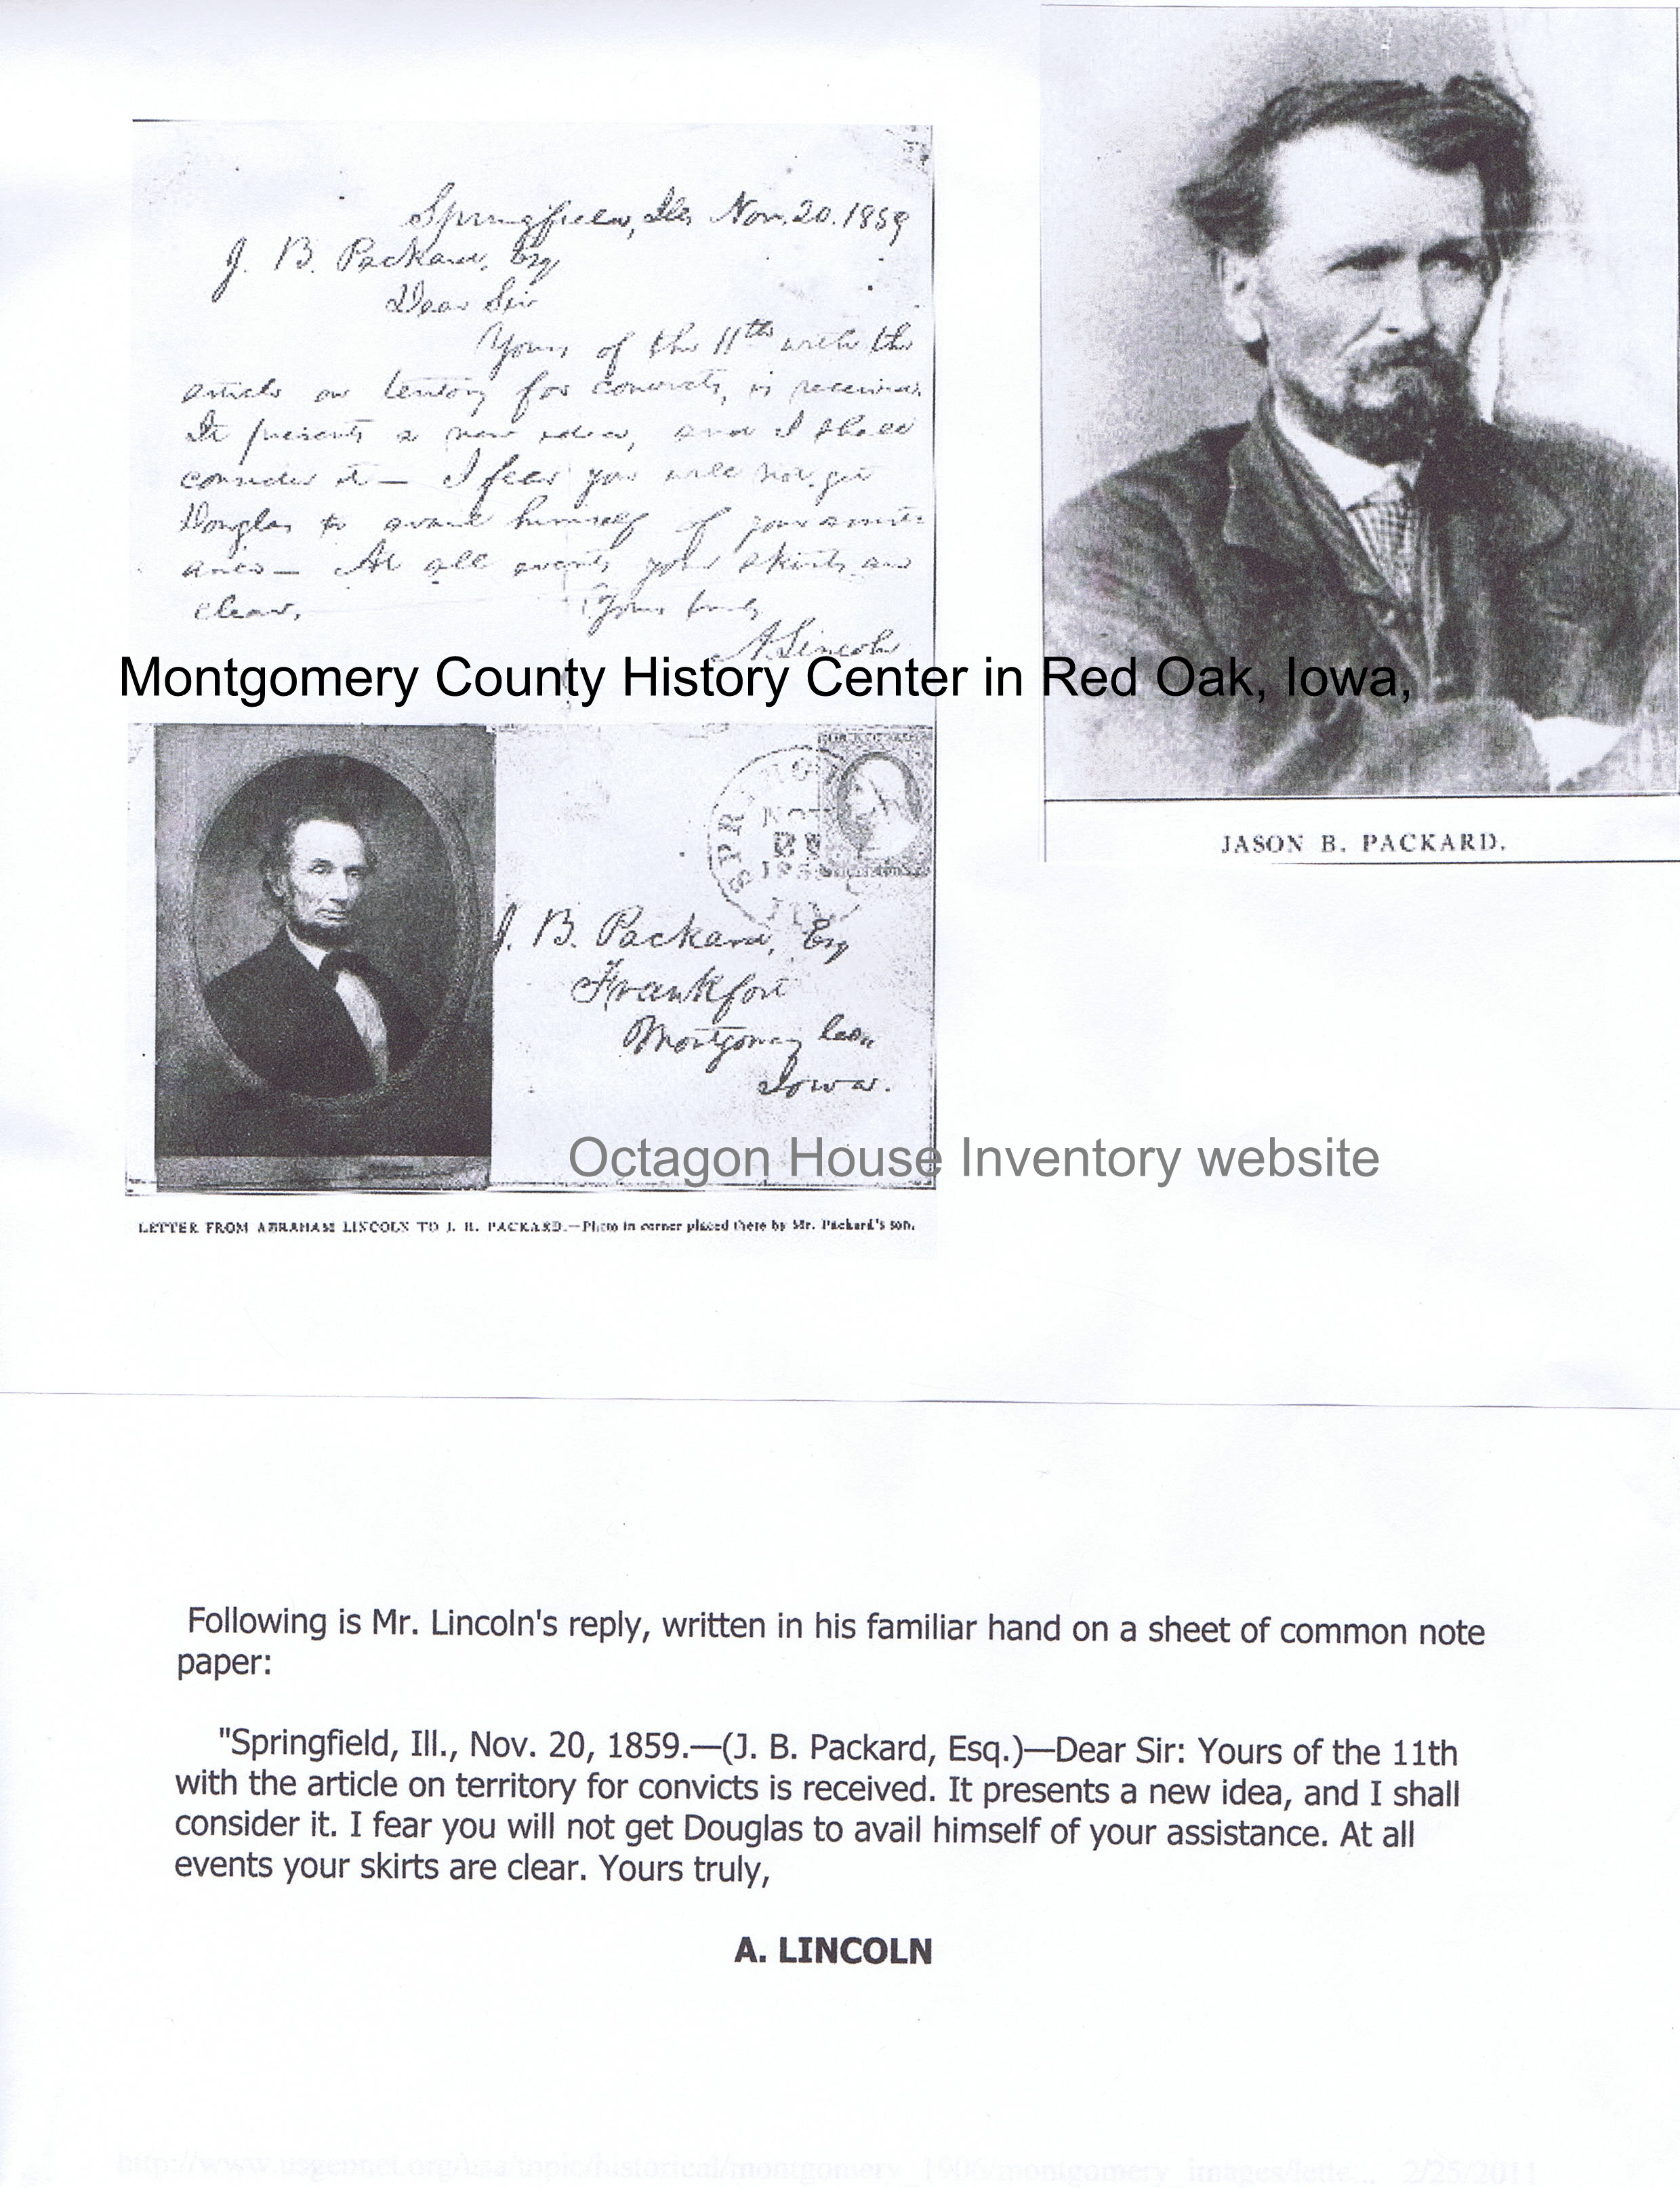 Springfield, Ills, Nov. 20. 1859
J. B. Packard, Esq
Dear Sir
Yours of the 11th with the
article on teritory for convicts, is received.
It presents a new idea, and I shall
consider it — I fear you will not get
Douglas to avail himself of your assist-
ance — At all events your skirts are
clear.
Yours truly
A. Lincoln
Montgomery County History Center in Red Oak, Iowa,
JASON B. PACKARD.
SPRING
NOV
ILL
J. B. Packard, Esq
Frankfort
Montgomery Co.
Iowa.
Octagon House Inventory website
LETTER FROM ABRAHAM LINCOLN TO J. B. PACKARD.—Photo in corner placed there by Mr. Packard's son.
Following is Mr. Lincoln's reply, written in his familiar hand on a sheet of common note
paper:
"Springfield, Ill., Nov. 20, 1859.—(J. B. Packard, Esq.)—Dear Sir: Yours of the 11th
with the article on territory for convicts is received. It presents a new idea, and I shall
consider it. I fear you will not get Douglas to avail himself of your assistance. At all
events your skirts are clear. Yours truly,
A. LINCOLN
http://www.usgennet.org/usa/topic/historical/montgomery_1906/montgomery_images/lette... 2/25/2011